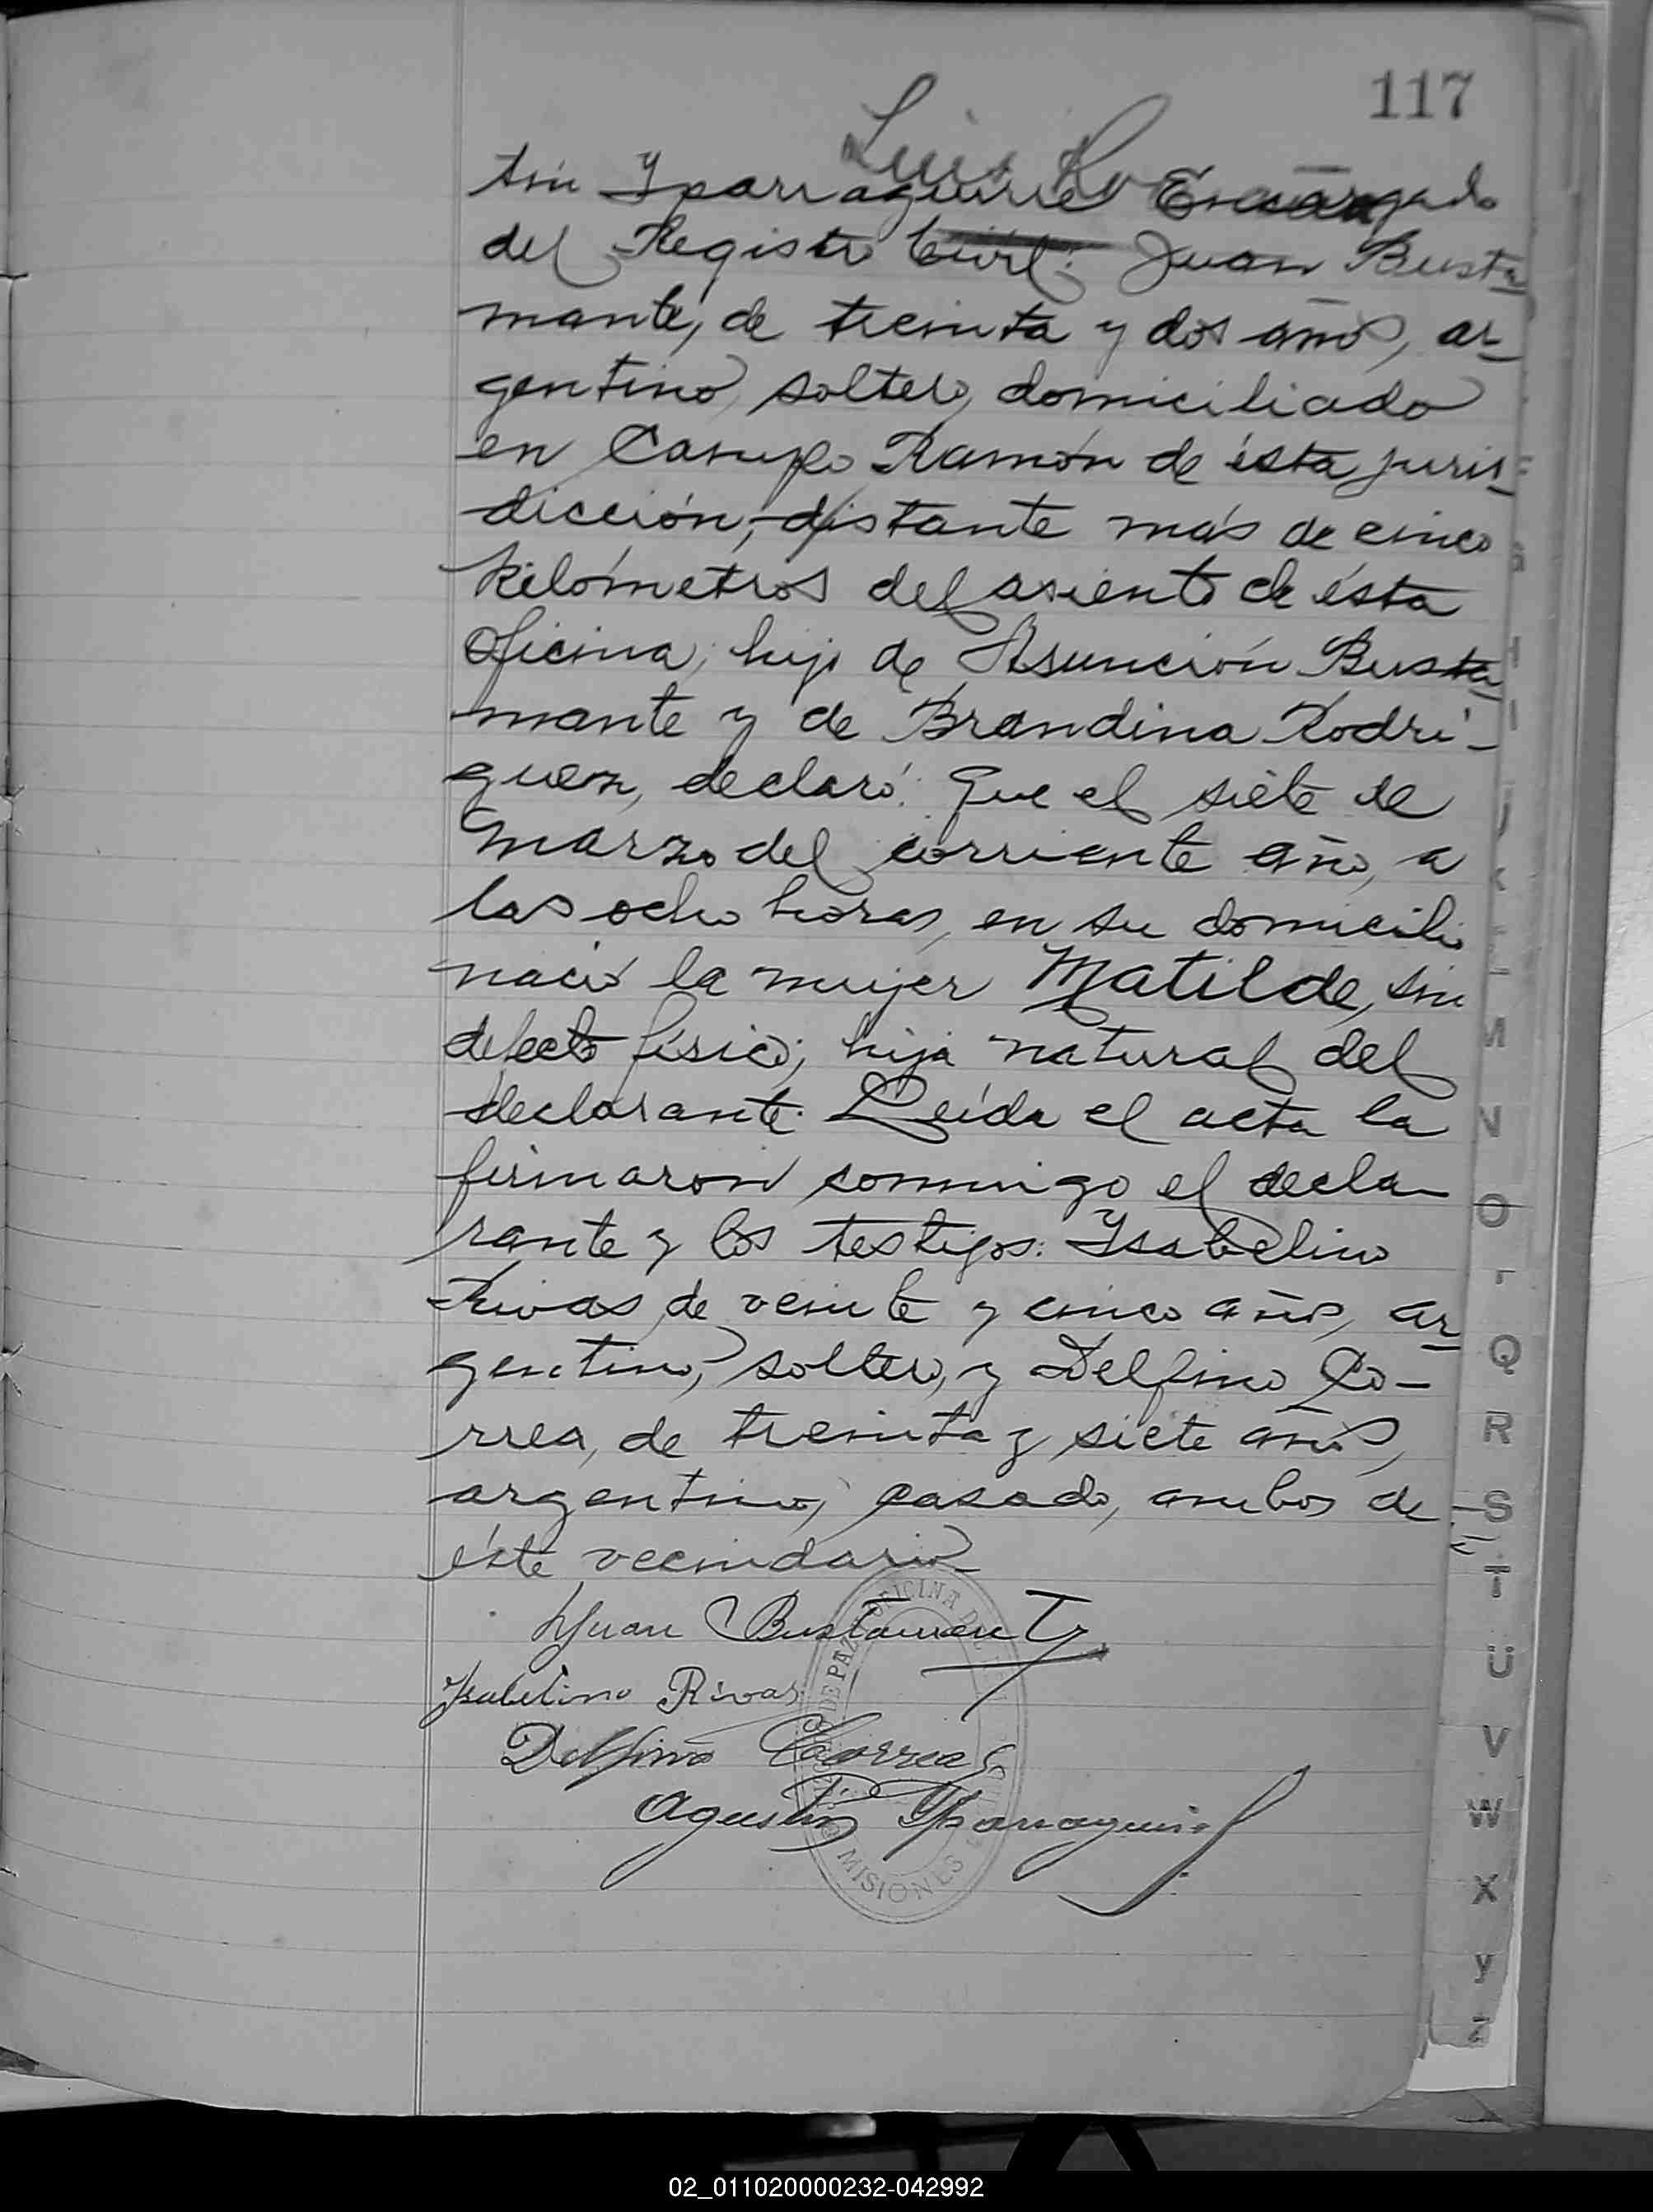 117
Luis
tín Yparraguirre Encargado
del Registro Civil: Juan Busta-
mante, de treinta y dos años, ar-
gentino, soltero, domiciliado
en Campo Ramón de ésta juris-
dicción, distante más de cinco
kilómetros del asiento de ésta
Oficina; hijo de Asunción Busta-
mante y de Brandina Rodrí-
guez, declaró: Que el siete de
Marzo del corriente año, a
las ocho horas, en su domicilio
nació la mujer Matilde, sin
defecto físico; hija natural del
declarante. Leída el acta la
firmaron conmigo el decla-
rante y los testigos: Ysabelino
Rivas, de veinte y cinco años, ar-
gentino, soltero, y Delfino Co-
rrea, de treinta y siete años,
argentino, casado, ambos de
éste vecindario
Juan Bustamente
Isabelino Rivas
Delfino Correa
Agustín Yparraguirre
OFICINA DE PAZ MISIONES
N
O
Q
R
S
T
U
V
W
X
Y
Z
02_011020000232-042992